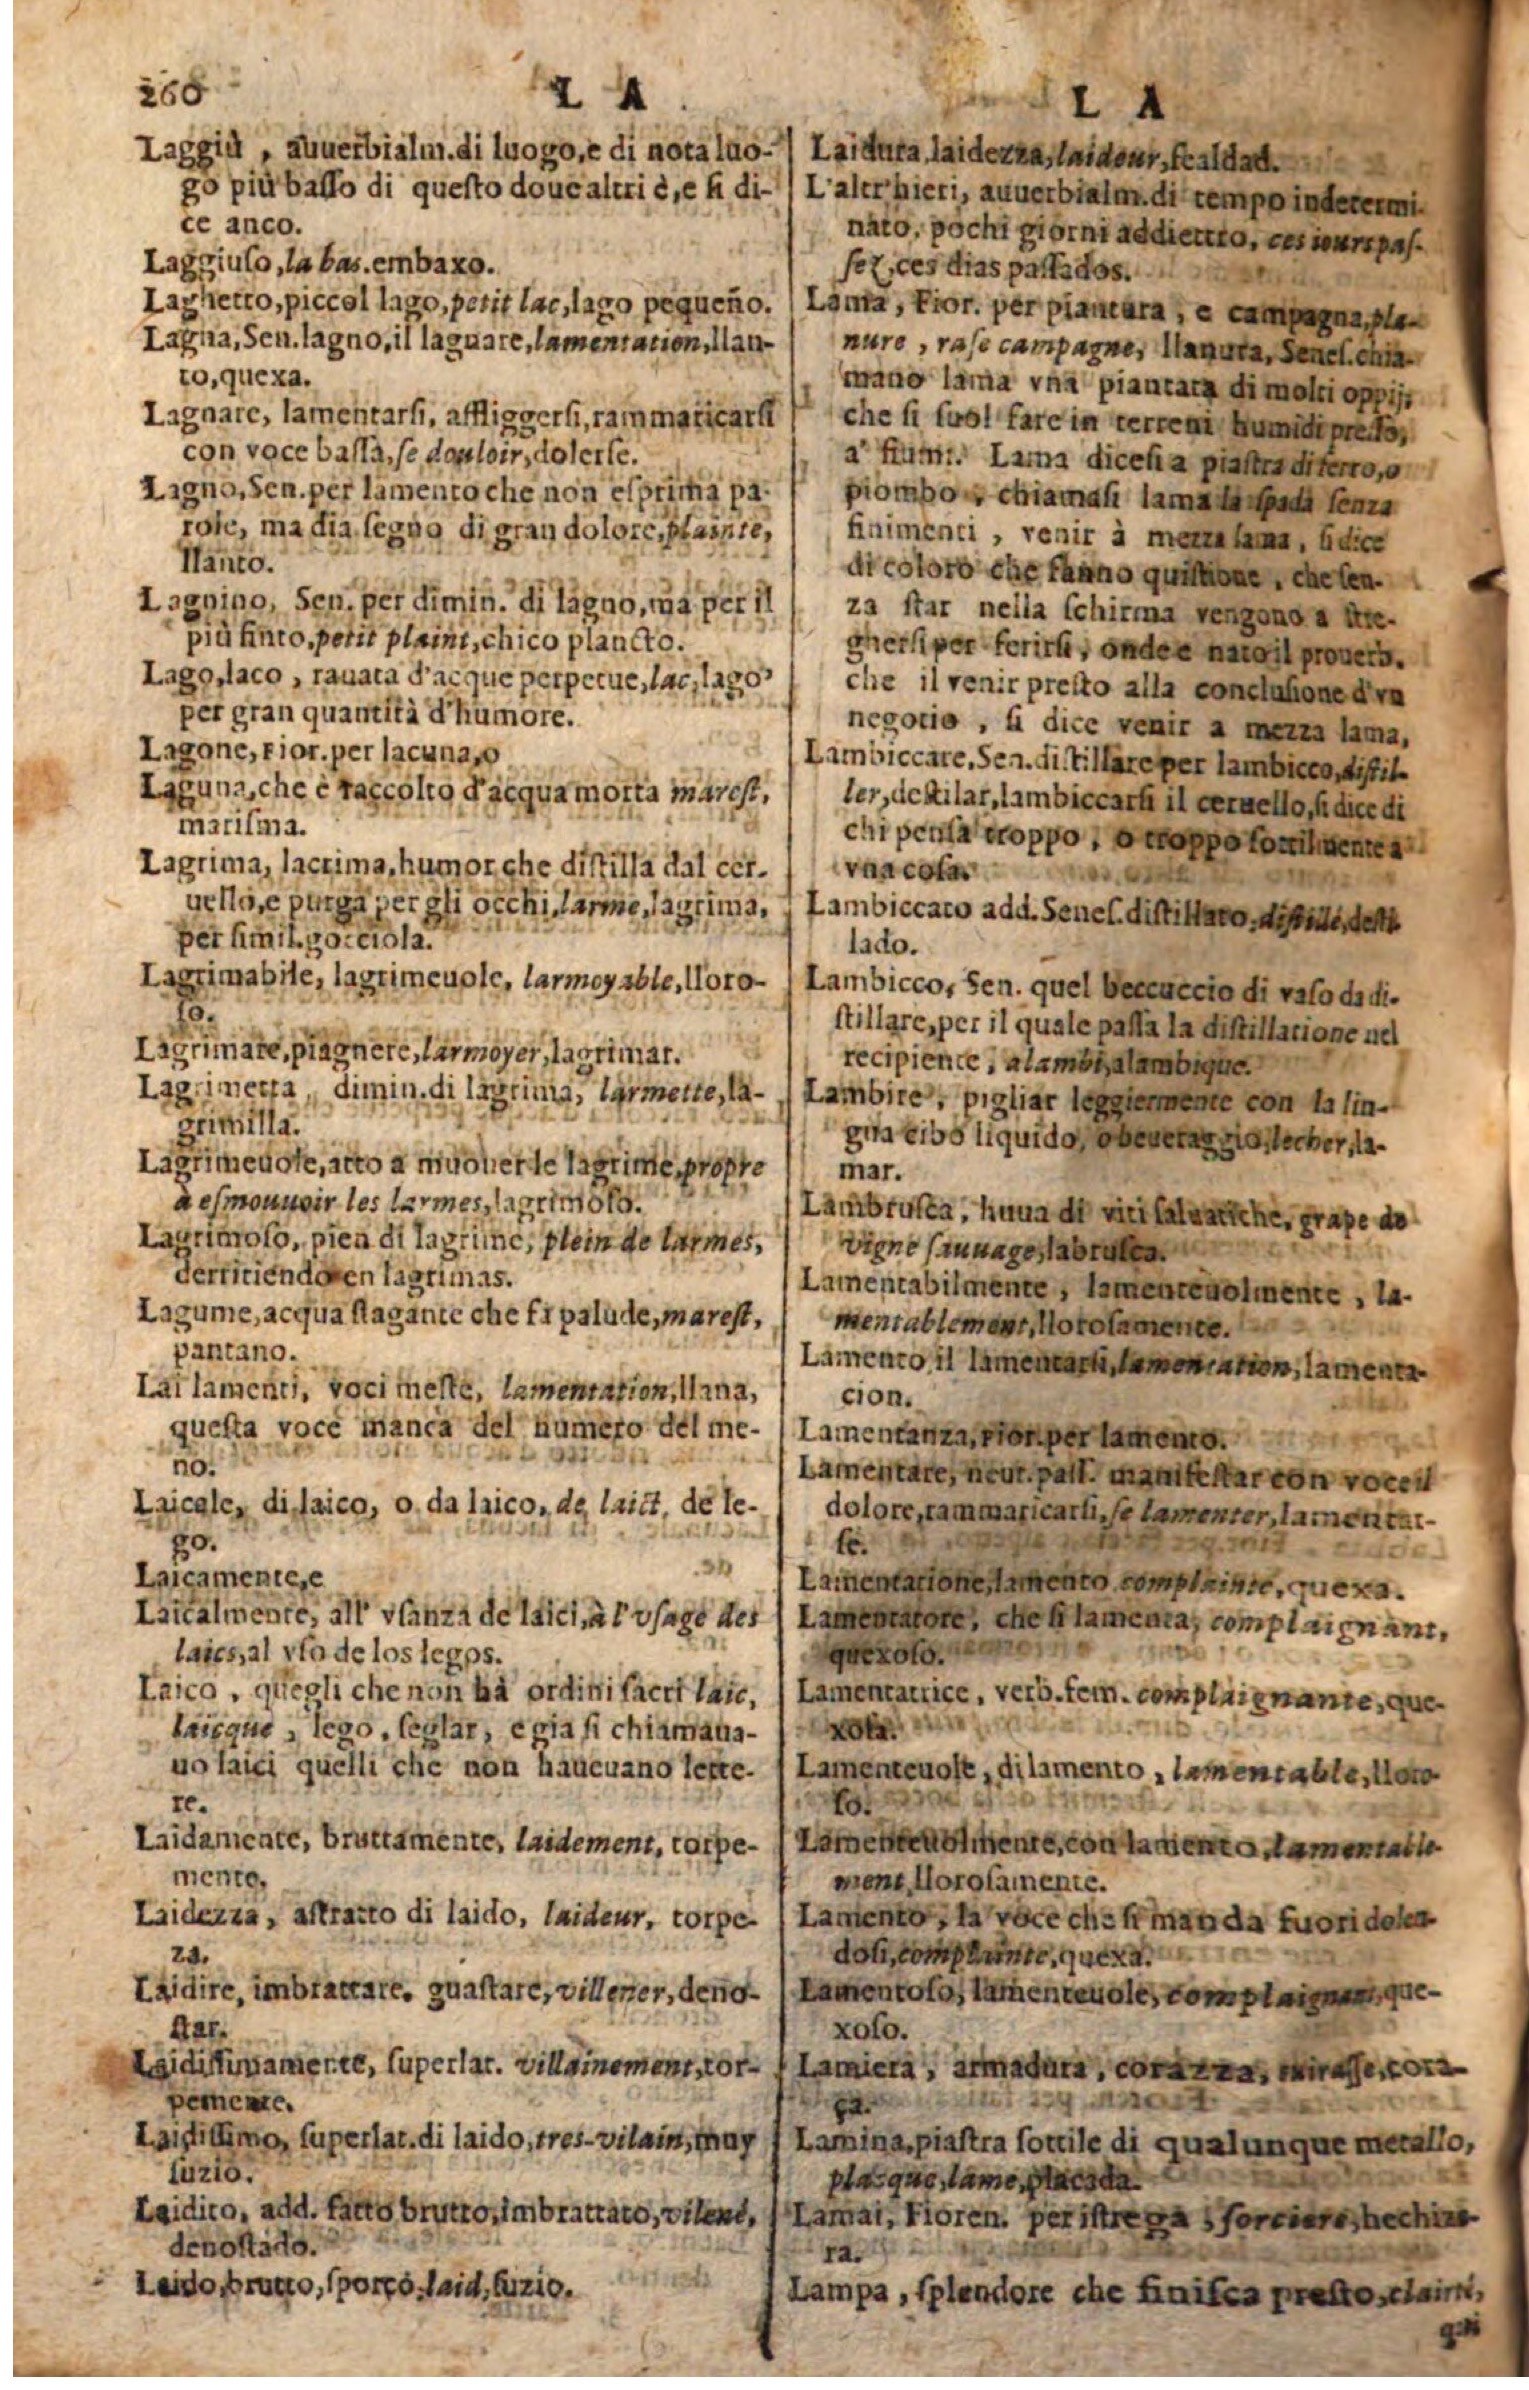 260 L A
Laggiù, auuerbialm.di luogo,e di nota luo-
go più baſſo di queſto doue altri è,e ſi di-
ce anco.
Laggiuſo,la bas.embaxo.
Laghetto,piccol lago,petit lac,lago pequeño.
Lagna,Sen.lagno,il lagnare,lamentation,llan-
to,quexa.
Lagnare, lamentarſi, affliggerſi,rammaricarſi
con voce baſſa,ſe douloir,dolerſe.
Lagno,Sen.per lamento che non eſprima pa-
role, ma dia ſegno di gran dolore,plainte,
llanto.
Lagnino, Sen. per dimin. di lagno,ma per il
più finto,petit plaint,chico plancto.
Lago,laco, rauata d'acque perpetue,lac,lago,
per gran quantità d'humore.
Lagone,Fior.per lacuna,o
Laguna,che è raccolto d'acqua morta mareſt,
mariſma.
Lagrima, lacrima,humor che diſtilla dal cer-
uello,e purga per gli occhi,larme,lagrima,
per ſimil.gocciola.
Lagrimabile, lagrimeuole, larmoyable,lloro-
ſo.
Lagrimare,piagnere,larmoyer,lagrimar.
Lagrimetta, dimin.di lagrima, larmette,la-
grimilla.
Lagrimeuole,atto a muouer le lagrime,propre
à eſmouuoir les larmes,lagrimoſo.
Lagrimoſo, pien di lagrime, plein de larmes,
derritiendo en lagrimas.
Lagume,acqua ſtagante che fa palude,mareſt,
pantano.
Lai lamenti, voci meſte, lamentation,llana,
queſta voce manca del numero del me-
no.
Laicale, di laico, o da laico, de laict, de le-
go.
Laicamente,e
Laicalmente, all' vſanza de laici,à l'vſage des
laics,al vſo de los legos.
Laico, quegli che non hà ordini ſacri laic,
laicque, lego, ſeglar, e gia ſi chiamaua-
no laici quelli che non haueuano lette-
re.
Laidamente, bruttamente, laidement, torpe-
mente.
Laidezza, aſtratto di laido, laideur, torpe-
za.
Laidire, imbrattare, guaſtare, villener, deno-
ſtar.
Laidiſſimamente, ſuperlat. villainement,tor-
pemente.
Laidiſſimo, ſuperlat.di laido,tres-vilain,muy
ſuzio.
Laidito, add. fatto brutto,imbrattato,vilené,
denoſtado.
Laido,brutto,ſporco,laid,ſuzio.
L A
Laidura,laidezza,laideur,fealdad.
L'altr'hieri, auuerbialm.di tempo indetermi-
nato, pochi giorni addiettro, ces iours paſ-
ſez,ces dias paſſados.
Lama, Fior. per piantura, e campagna,pla-
nure, raſe campagne, llanura, Seneſ.chia-
mano lama vna piantata di molti oppij,
che ſi ſuol fare in terreni humidi preſſo,
a' fiumi. Lama diceſi a piaſtra di ferro,o
piombo, chiamaſi lama la ſpada ſenza
finimenti, venir à mezza lama, ſi dice
di coloro che fanno quiſtione, che ſen-
za ſtar nella ſchirma vengono a ſtre-
gnerſi per ferirſi, onde è nato il prouerb.
che il venir preſto alla concluſione d'vn
negotio, ſi dice venir a mezza lama,
Lambiccare,Sen.diſtillare per lambicco,diſtil-
ler,deſtilar,lambiccarſi il ceruello,ſi dice di
chi penſa troppo, o troppo ſottilmente a
vna coſa.
Lambiccato add.Seneſ.diſtillato,diſtillé,deſti-
lado.
Lambicco, Sen. quel beccuccio di vaſo da di-
ſtillare,per il quale paſſa la diſtillatione nel
recipiente, alambi,alambique.
Lambire, pigliar leggiermente con la lin-
gua cibo liquido, o beueraggio,lecher,la-
mar.
Lambruſca, huua di viti ſaluatiche, grape de
vigne ſauuage,labruſca.
Lamentabilmente, lamenteuolmente, la-
mentablement,lloroſamente.
Lamento il lamentarſi,lamentation,lamenta-
cion.
Lamentanza,Fior.per lamento.
Lamentare, neut.paſſ. manifeſtar con voce il
dolore,rammaricarſi,ſe lamenter,lamentar-
ſe.
Lamentatione,lamento complainte,quexa.
Lamentatore, che ſi lamenta, complaignant,
quexoſo.
Lamentatrice, verb.fem. complaignante,que-
xoſa.
Lamenteuole, di lamento, lamentable,lloro-
ſo.
Lamenteuolmente,con lamento,lamentable-
ment,lloroſamente.
Lamento, la voce che ſi manda fuori dolen-
doſi,complainte,quexa.
Lamentoſo, lamenteuole, complaignant,que-
xoſo.
Lamiera, armadura, corazza, cuiraſſe,cora-
ça.
Lamina,piaſtra ſottile di qualunque metallo,
placque,lame,placada.
Lamai, Fioren. per iſtrega, ſorciere,hechize-
ra.
Lampa, ſplendore che finiſca preſto,